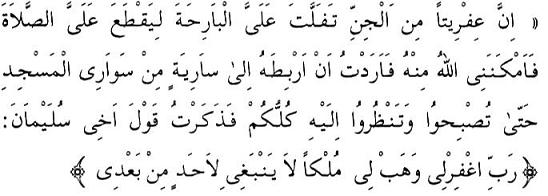 « اِنَّ عِفْرِيتاً مِنَ اْلجِنِّ تَفَلَّتَ عَلَىَّ الْبَارِحَةَ لِيَقْطَعَ عَلَىَّ الصَّلاَةَ
فَاَمْكَنَنِى اللهُ مِنْهُ فَاَرَدْتُ اَنْ اَرْبِطَهُ اِلىٰ سارِيَةٍ مِنْ سَوَارِى الْمَسْجِدِ
حَتّىٰ تُصْبِحُوا وَتَنْظُرُوا اِلَيْهِ كُلُّكُمْ فَذَكَرْتُ قَوْلَ اَخِى سُلَيْمَانَ:
﴿ رَبِّ اغْفِرْلِى وَهَبْ لِى مُلْكاً لاَ يَنْبَغِى لِاَحَدٍ مِنْ بَعْدِى ﴾